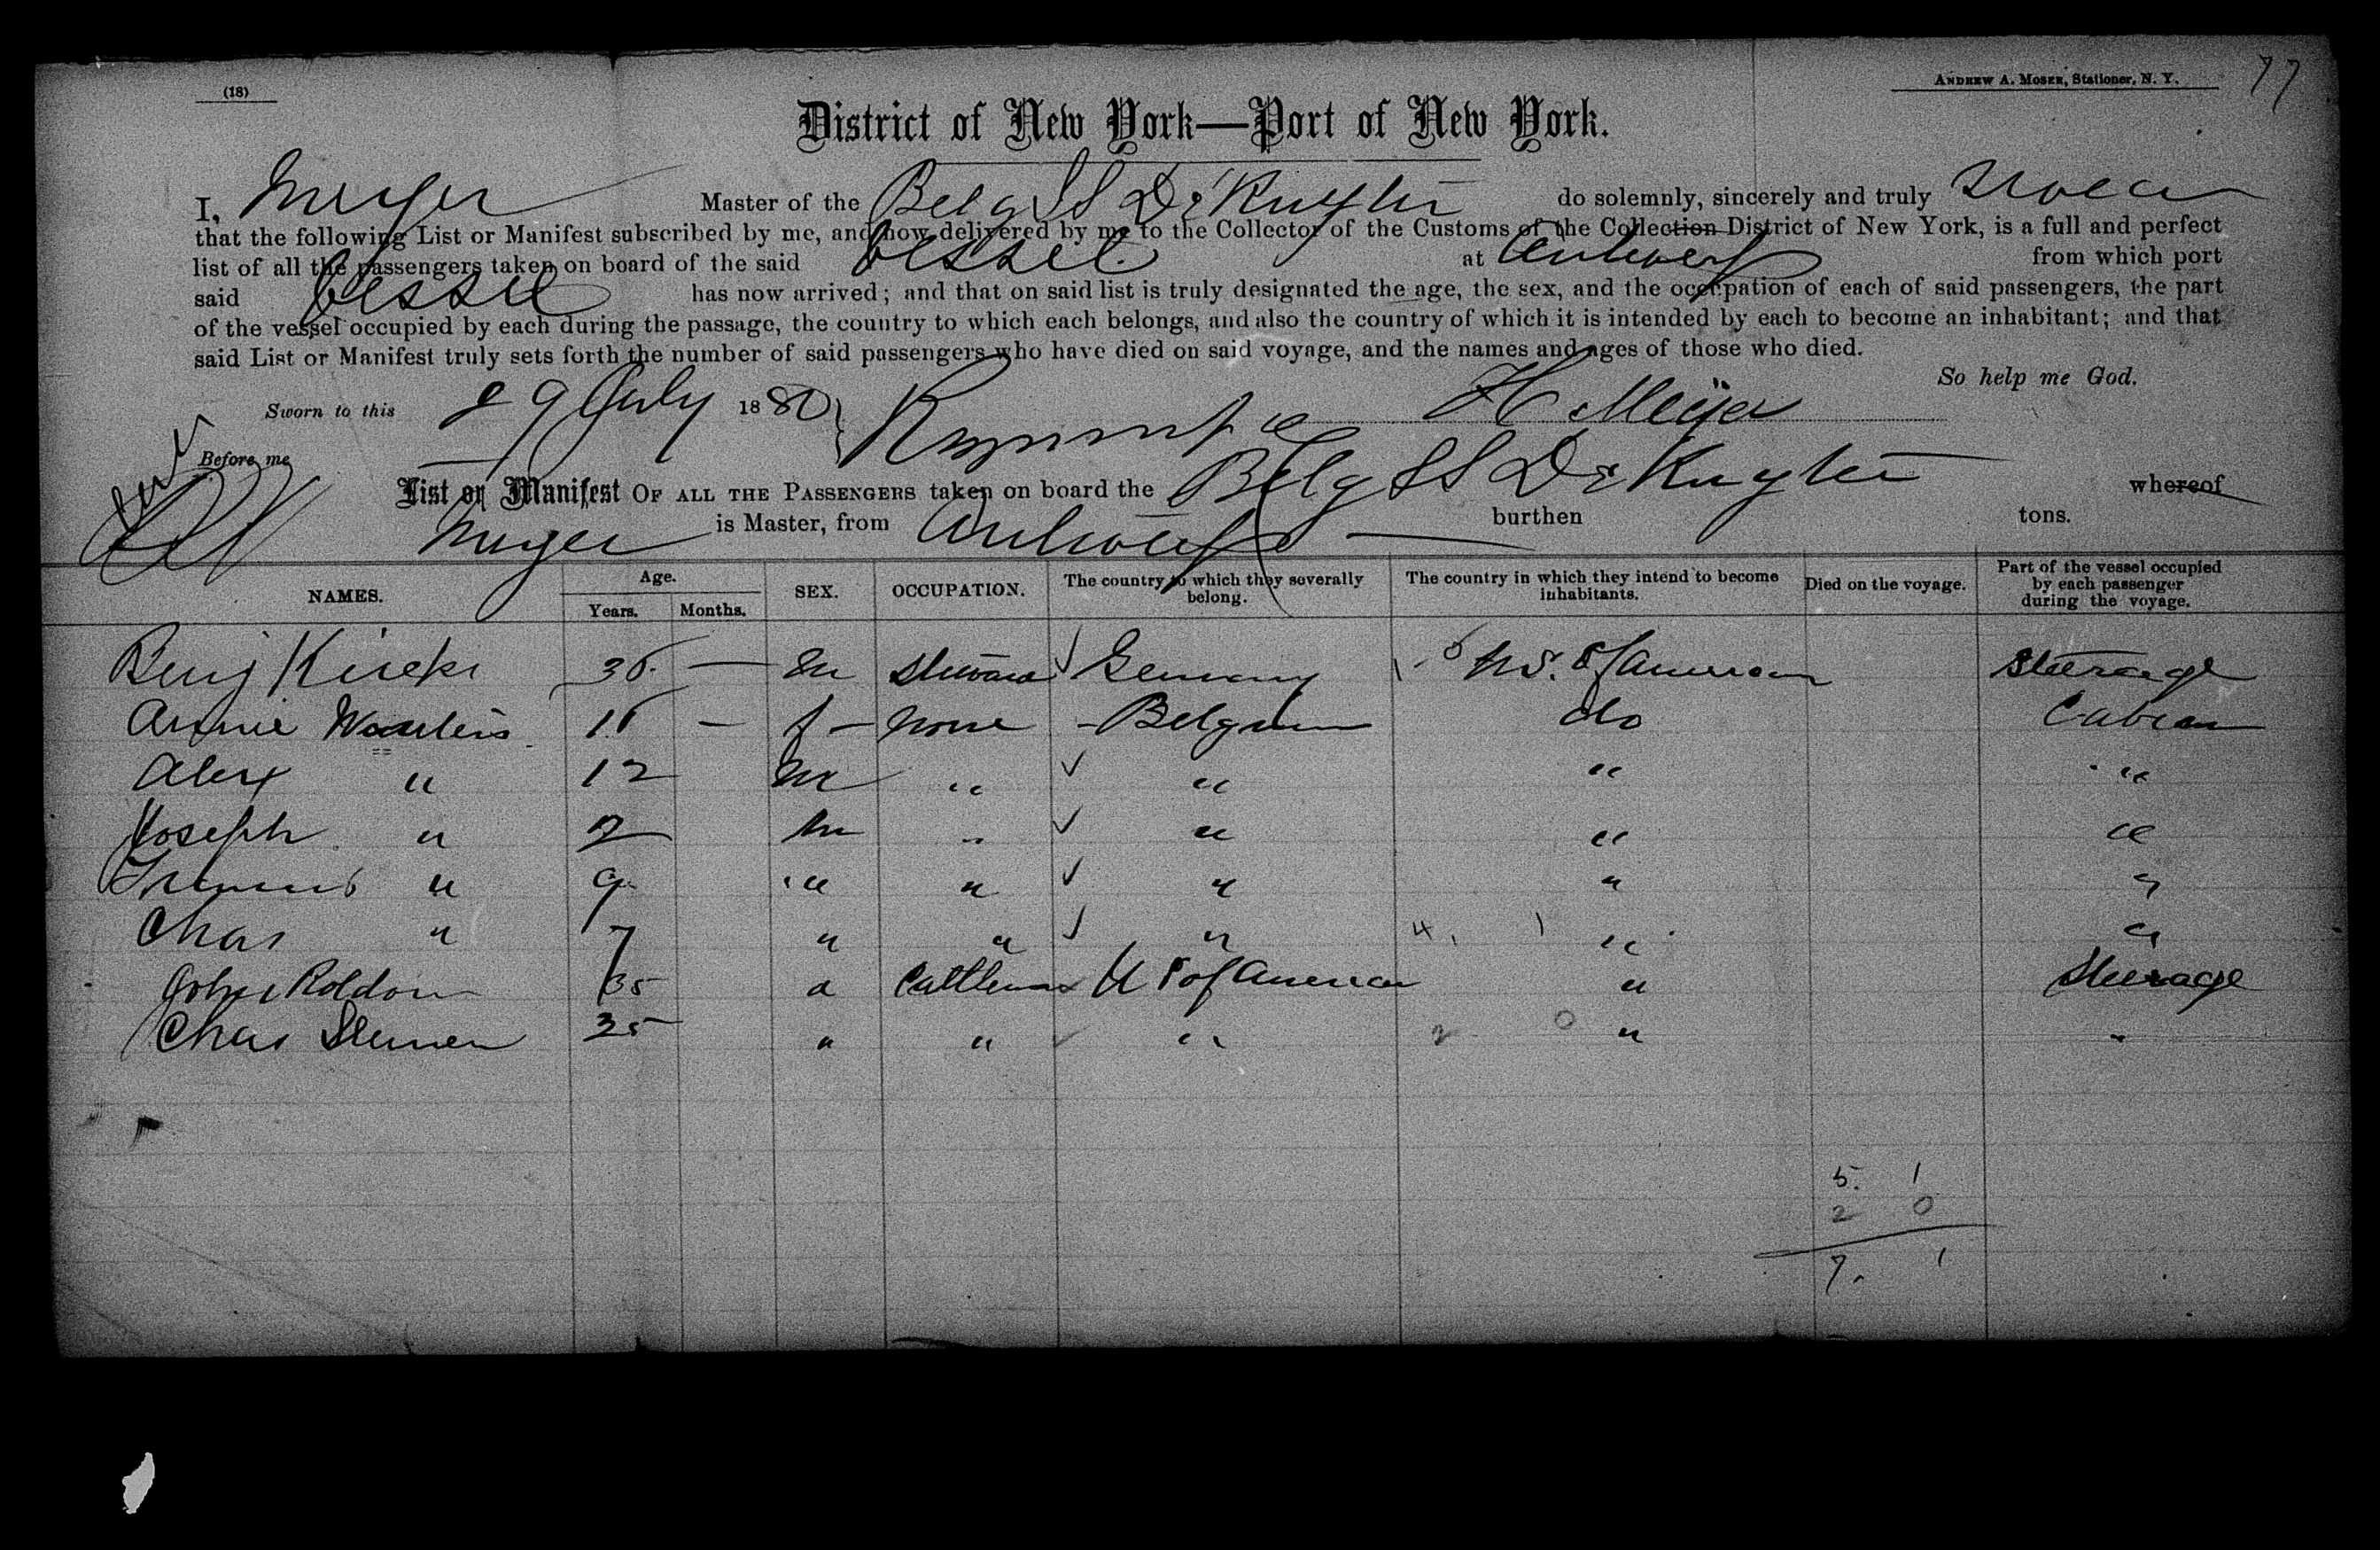 (18)
ANDREW A. MOSER, Stationer, N. Y.
77
District of New York—Port of New York.
I, Meyer Master of the Belg SS De Ruyter do solemnly, sincerely and truly swear
that the following List or Manifest subscribed by me, and now delivered by me to the Collector of the Customs of the Collection District of New York, is a full and perfect
list of all the passengers taken on board of the said vessel at Antwerp from which port
said vessel has now arrived; and that on said list is truly designated the age, the sex, and the occupation of each of said passengers, the part
of the vessel occupied by each during the passage, the country to which each belongs, and also the country of which it is intended by each to become an inhabitant; and that
said List or Manifest truly sets forth the number of said passengers who have died on said voyage, and the names and ages of those who died.
So help me God.
Sworn to this 29 July 1880 H Meyer
Before me
List or Manifest OF ALL THE PASSENGERS taken on board the Belg SS De Ruyter whereof
Meyer is Master, from Antwerp burthen tons.
NAMES. Age. Years. Months. SEX. OCCUPATION. The country to which they severally belong. The country in which they intend to become inhabitants. Died on the voyage. Part of the vessel occupied by each passenger during the voyage.
Benj — m Steward Germany U.S. of American Steerage
Annie — f — None - Belgium do Cabin
Alex " 12 m " " " "
Joseph " 2 m " " " "
" 9 " " " " "
Chas " 7 " " " 4 1 " "
John Roldon 35 " Cattleman U S of American " Steerage
Chas 35 " " " 2 0 " "
5. 1
2 0
7. 1